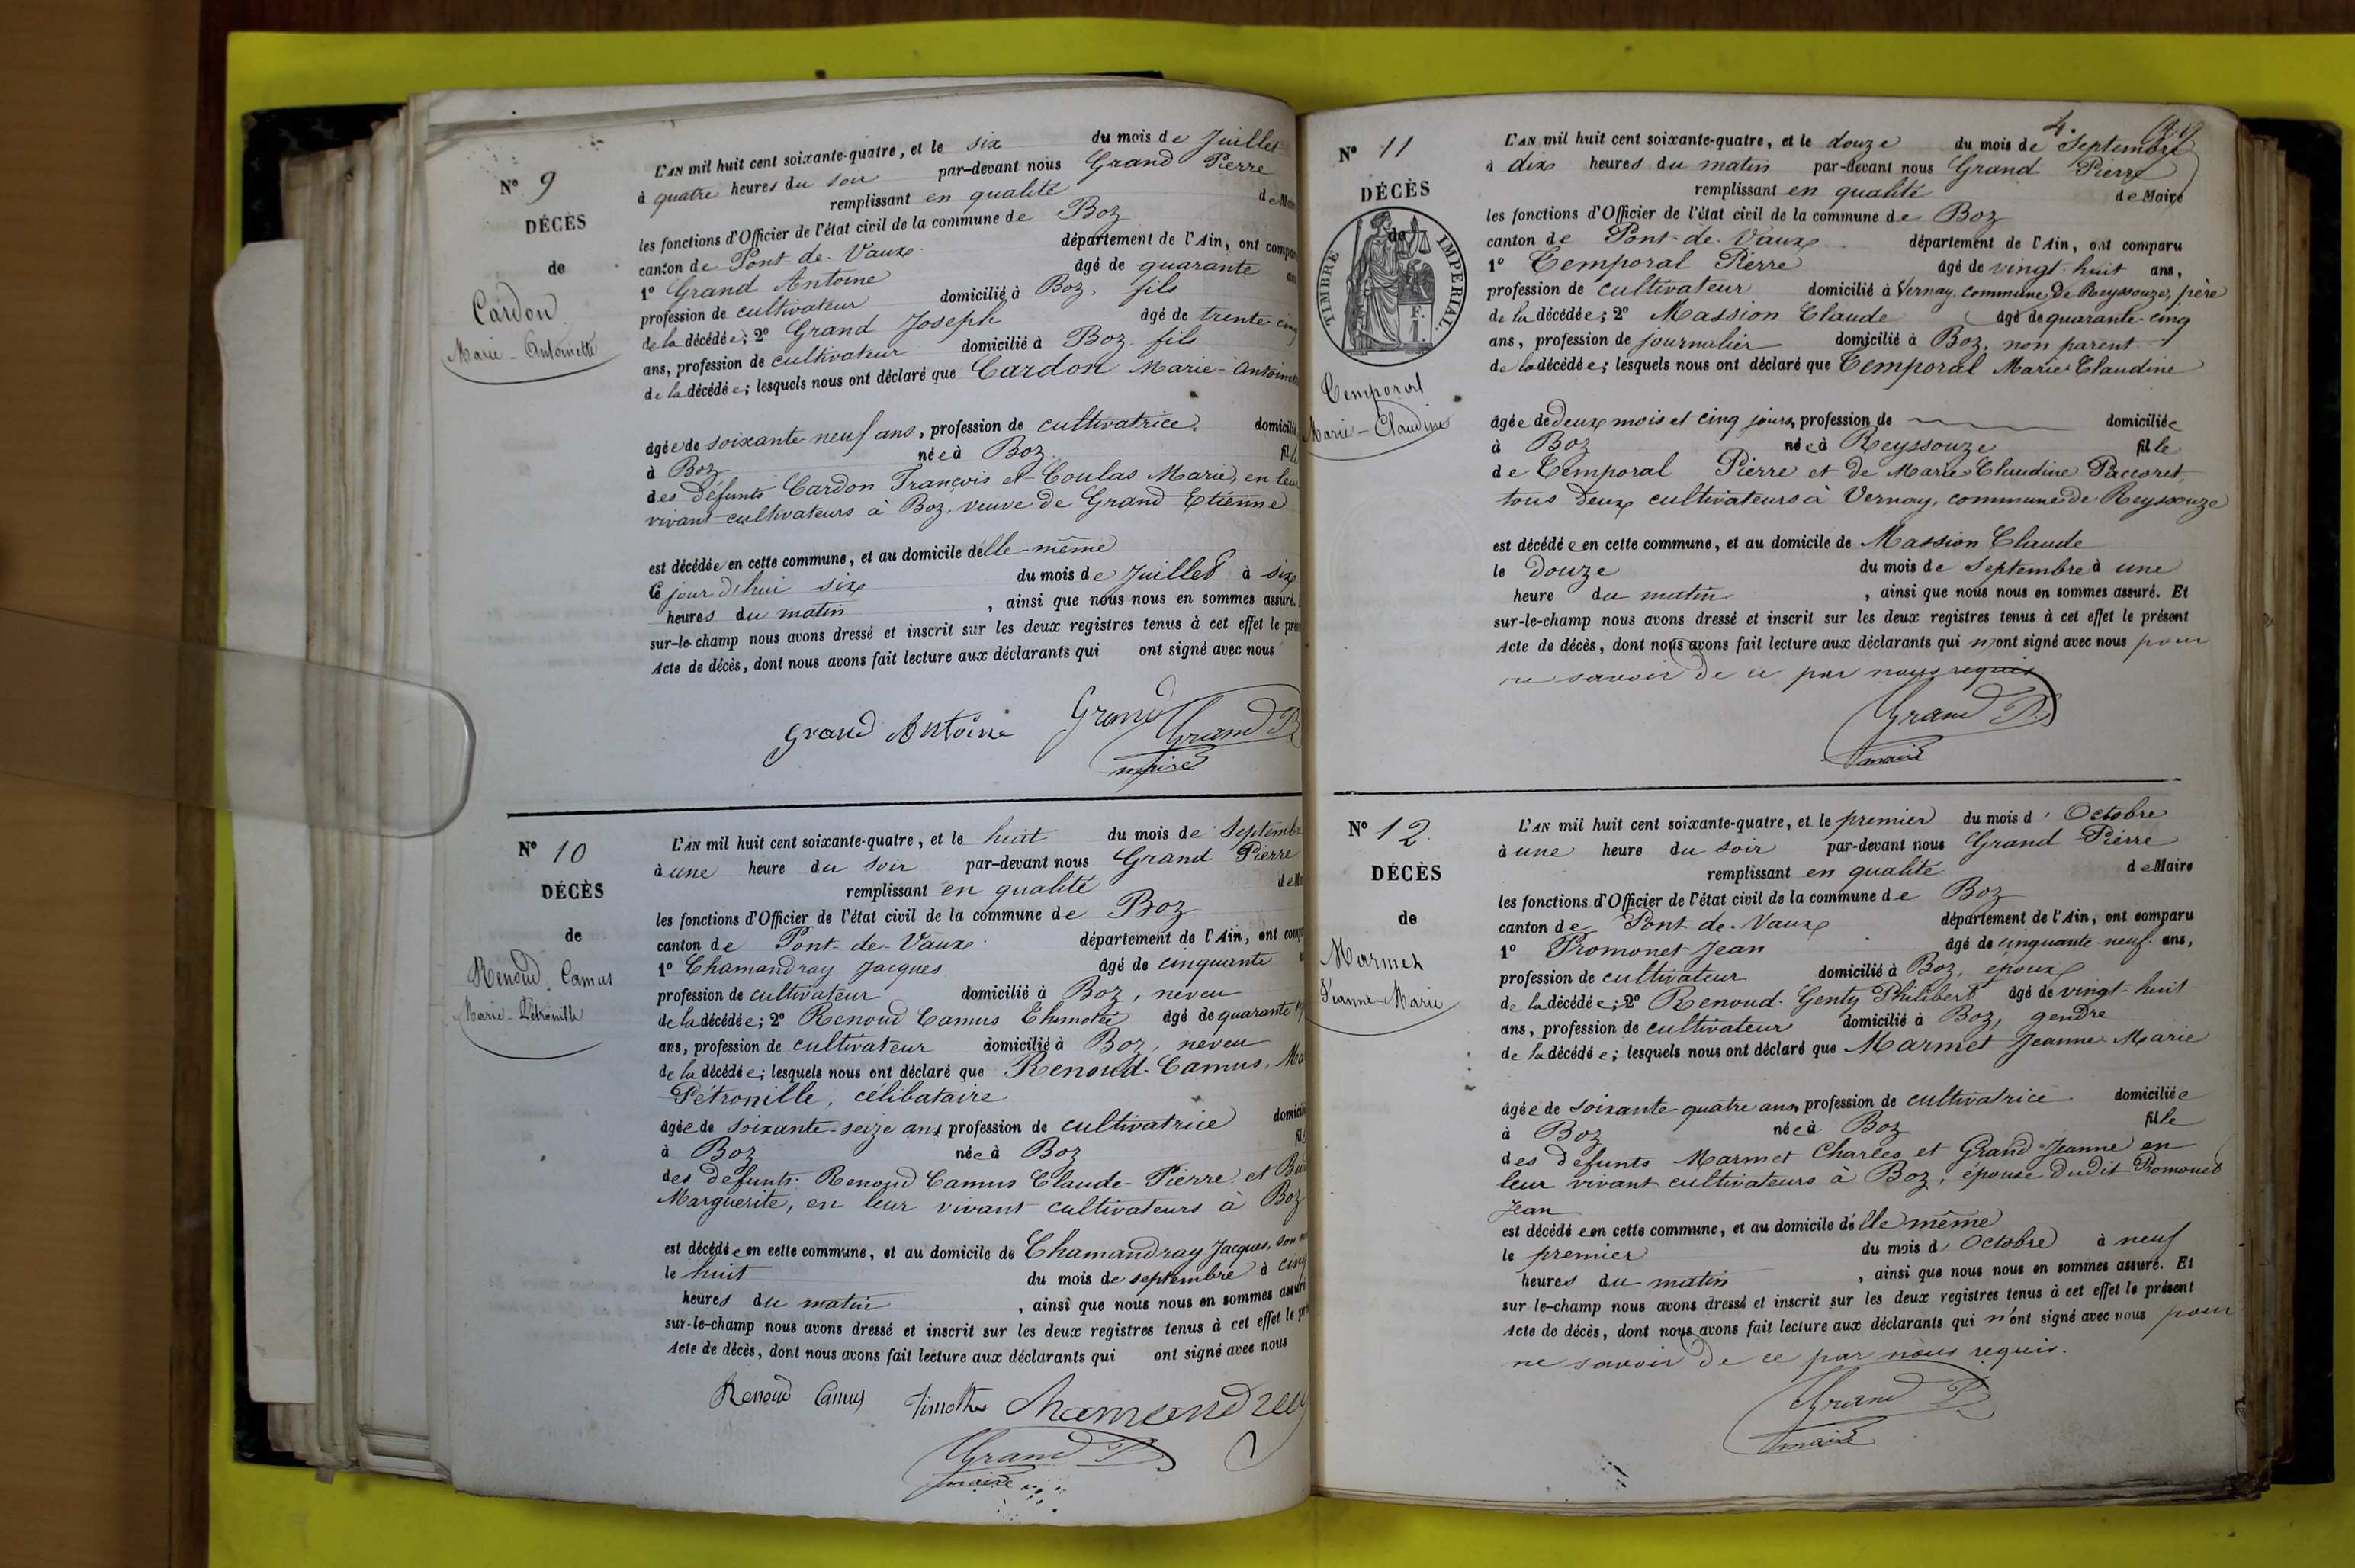 N° 9
DÉCÈS
de
Cardon
Marie-Antoinette
L'AN mil huit cent soixante-quatre, et le six du mois de Juillet
à quatre heures du soir par-devant nous Grand Pierre
remplissant en qualité de
les fonctions d'Officier de l'état civil de la commune de Boz
canton de Pont-de-Vaux département de l'Ain, ont
1° Grand Antoine âgé de quarante
profession de cultivateur domicilié à Boz, fils
de la décédée; 2° Grand Joseph âgé de trente
ans, profession de cultivateur domicilié à Boz fils
de la décédée; lesquels nous ont déclaré que Cardon Marie-
âgée de soixante-neuf ans, profession de cultivatrice
à Boz née à Boz
des défunts Cardon François et Coulas Marie, en
vivant cultivateurs à Boz, veuve de Grand Etienne
est décédée en cette commune, et au domicile d'elle-même
Ce jour d'hui six du mois de Juillet à six
heures du matin, ainsi que nous nous en sommes assuré.
sur-le-champ nous avons dressé et inscrit sur les deux registres tenus à cet effet le
Acte de décès, dont nous avons fait lecture aux déclarants qui ont signé avec nous
Grand Antoine Grand Grand P
maire
N° 10
DÉCÈS
de
Renoud Camus
Marie-Pétronille
L'AN mil huit cent soixante-quatre, et le huit du mois de Septembre
à une heure du soir par-devant nous Grand Pierre
remplissant en qualité de
les fonctions d'Officier de l'état civil de la commune de Boz
canton de Pont-de-Vaux département de l'Ain, ont
1° Chamandray Jacques âgé de cinquante
profession de cultivateur domicilié à Boz, neveu
de la décédée; 2° Renoud Camus Thimotée âgé de quarante
ans, profession de cultivateur domicilié à Boz, neveu
de la décédée; lesquels nous ont déclaré que Renoud-Camus,
Pétronille, célibataire
âgée de soixante-seize ans profession de cultivatrice
à Boz née à Boz
des défunts Renoud Camus Claude-Pierre, et
Marguerite, en leur vivant cultivateurs à Boz
est décédée en cette commune, et au domicile de Chamandray Jacques, son
le huit du mois de septembre à cinq
heures du matin, ainsi que nous nous en sommes assuré
sur-le-champ nous avons dressé et inscrit sur les deux registres tenus à cet effet le
Acte de décès, dont nous avons fait lecture aux déclarants qui ont signé avec nous
Renoud Camus Timothe Chamandray
Grand P
maire
4.
N° 11
DÉCÈS
de
TIMBRE IMPERIAL.
Temporal
Marie-Claudine
L'AN mil huit cent soixante-quatre, et le douze du mois de Septembre
à dix heures du matin par-devant nous Grand Pierre
remplissant en qualité de Maire
les fonctions d'Officier de l'état civil de la commune de Boz
canton de Pont-de-Vaux département de l'Ain, ont comparu
1° Temporal Pierre âgé de vingt-huit ans,
profession de cultivateur domicilié à Vernay, commune de Reyssouze, père
de la décédée; 2° Massion Claude âgé de quarante-cinq
ans, profession de journalier domicilié à Boz, non parent
de la décédée; lesquels nous ont déclaré que Temporal Marie-Claudine
âgée de deux mois et cinq jours, profession de domiciliée
à Boz née à Reyssouze fille
de Temporal Pierre et de Marie-Claudine Paccoret,
tous deux cultivateurs à Vernay, commune de Reyssouze
est décédée en cette commune, et au domicile de Massion Claude
le douze du mois de Septembre à une
heure du matin, ainsi que nous nous en sommes assuré. Et
sur-le-champ nous avons dressé et inscrit sur les deux registres tenus à cet effet le présent
Acte de décès, dont nous avons fait lecture aux déclarants qui n'ont signé avec nous pour
ne savoir de ce par nous requis
Grand P
maire
N° 12
DÉCÈS
de
Marmet
Jeanne-Marie
L'AN mil huit cent soixante-quatre, et le premier du mois d'Octobre
à une heure du soir par-devant nous Grand Pierre
remplissant en qualité de Maire
les fonctions d'Officier de l'état civil de la commune de Boz
canton de Pont-de-Vaux département de l'Ain, ont comparu
1° Promonet Jean âgé de cinquante-neuf ans,
profession de cultivateur domicilié à Boz, époux
de la décédée; 2° Renoud-Genty Philibert âgé de vingt-huit
ans, profession de cultivateur domicilié à Boz, gendre
de la décédée; lesquels nous ont déclaré que Marmet Jeanne-Marie
âgée de soixante-quatre ans, profession de cultivatrice domiciliée
à Boz née à Boz fille
des défunts Marmet Charles et Grand Jeanne en
leur vivant cultivateurs à Boz, épouse dudit Promonet
Jean
est décédée en cette commune, et au domicile d'elle même
le premier du mois d'Octobre à neuf
heures du matin, ainsi que nous nous en sommes assuré. Et
sur le-champ nous avons dressé et inscrit sur les deux registres tenus à cet effet le présent
Acte de décès, dont nous avons fait lecture aux déclarants qui n'ont signé avec nous pour
ne savoir de ce par nous requis.
Grand P
maire